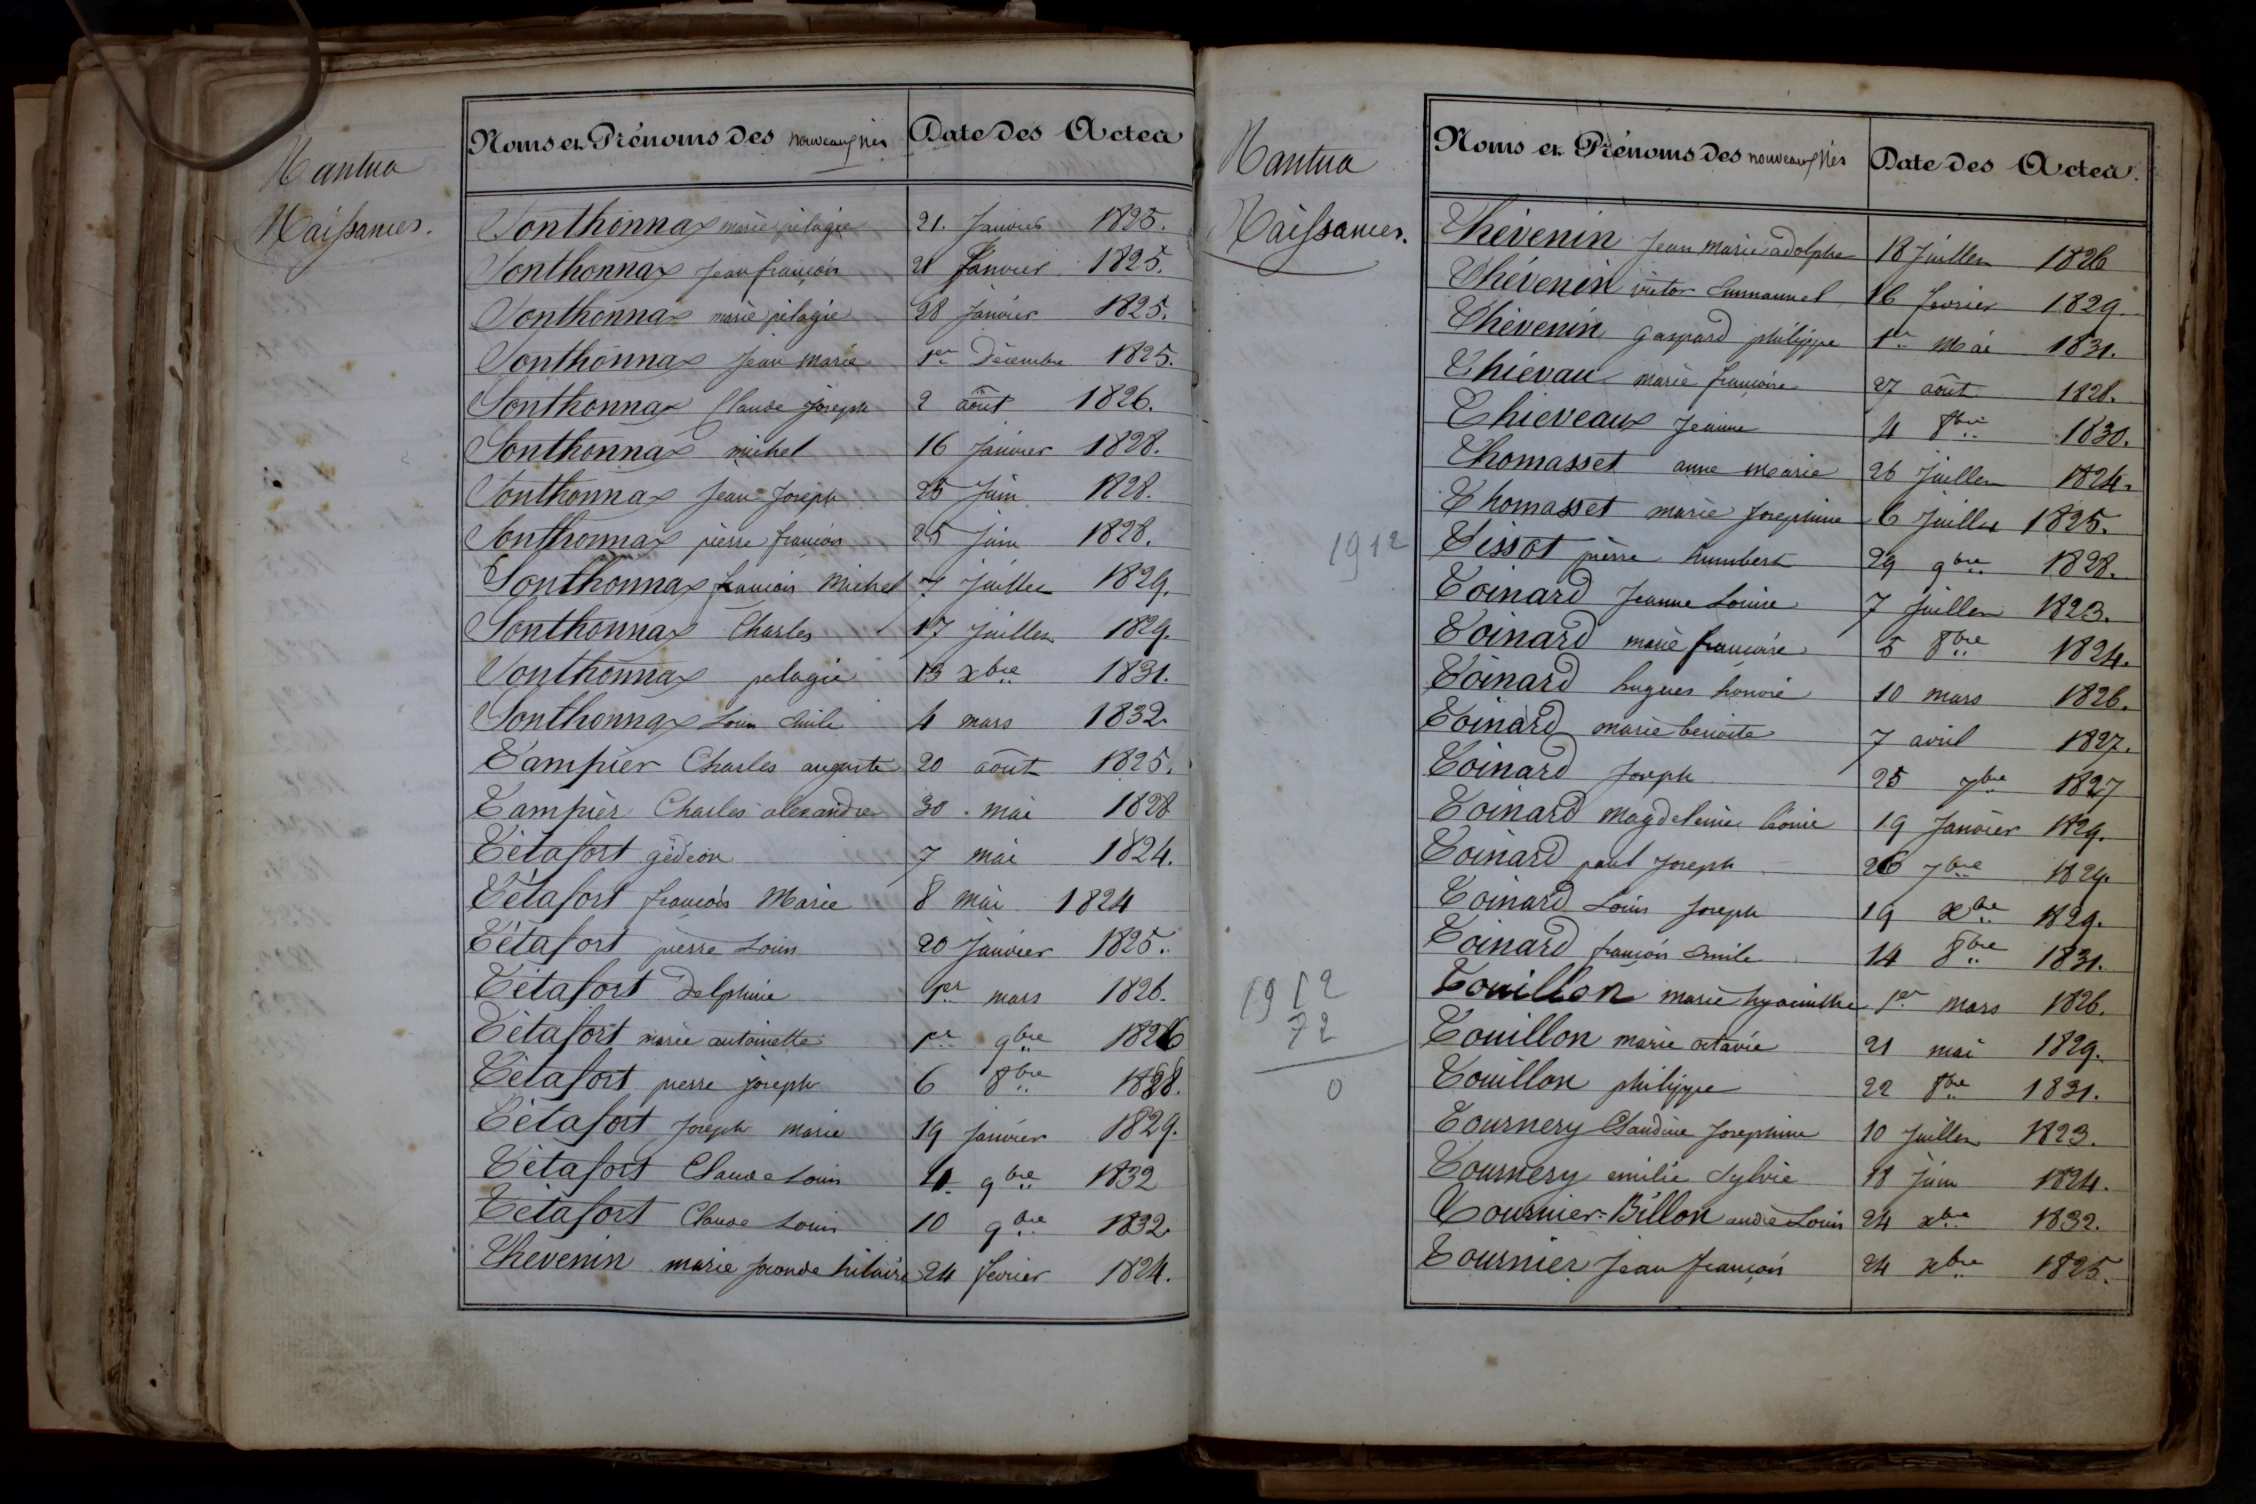 Nantua
Naissances.
Noms et Prénoms des nouveaux nés Date des Actes
Sonthonnax marie pélagie 21. Janvier 1825.
Sonthonnax Jean françois 21 Janvier 1825.
Sonthonnax marie pélagie 28 Janvier 1825.
Sonthonnax Jean Marie 1er Décembre 1825.
Sonthonnax Claude Joseph 2 août 1826.
Sonthonnax michel 16 Janvier 1828.
Sonthonnax Jean Joseph 25 Juin 1828.
Sonthonnax pierre françois 25 Juin 1828.
Sonthonnax françois Michel 7 Juillet 1829.
Sonthonnax Charles 17 Juillet 1829.
Sonthonnax pelagie 13 xbre 1831.
Sonthonnax Louis Emile 4 mars 1832
Tampier Charles auguste 20 août 1825.
Tampier Charles alexandre 30 . mai 1828
Tétafort gédeon 7 mai 1824.
Tétafort françois Marie 8 mai 1824
Tétafort pierre Louis 20 Janvier 1825.
Tétafort Delphine 1er mars 1826.
Tétafort marie antoinette 1er 9bre 1826
Tétafort pierre joseph 6 8bre 1828.
Tétafort Joseph marie 19 janvier 1829.
Tétafort Claude Louis 4 9bre 1832
Tétafort Claude Louis 10 9bre 1832.
Thevenin marie joconde hilaire 24 février 1824.
Nantua
Naissances.
Noms et Prénoms des nouveaux Nés Date des Actes.
Thévenin Jean marie adolphe 18 Juillet 1826
Thévenin victor Emmanuel 16 fevrier 1829.
Thévenin gaspard philippe 1er Mai 1831.
Thiévau marie françoise 27 août 1828.
Thieveaux Jeanne 4 8bre 1830.
Thomasset anne Marie 26 Juillet 1824.
Thomasset marie Josephine 6 Juillet 1825.
1912
Tissot pierre humbert 29 9bre 1828.
Toinard Jeanne Louise 7 Juillet 1823.
Toinard marie françoise 5 8bre 1824.
Toinard hugues honoré 10 mars 1826.
Toinard marie benoite 7 avril 1827.
Toinard Joseph 25 7bre 1827
Toinard Magdeleine Léonie 19 Janvier 1829.
Toinard paul Joseph 26 7bre 1829.
Toinard Louis Joseph 19 xbre 1829.
Toinard françois Emile 14 8bre 1831.
1912
72
0
Touillon marie hyacinthe 1er mars 1826.
Touillon marie octavie 21 mai 1829.
Touillon philippe 22 8bre 1831.
Tournery Claudine Josephine 10 Juillet 1823.
Tournery emilie Sylvie 18 Juin 1824.
Tournier=Billon andré Louis 24 xbre 1832.
Tournier Jean François 24 xbre 1825.